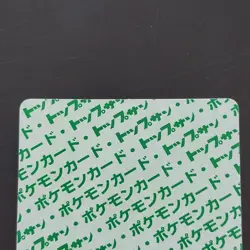 トップサン・
ポケモンカード・トップサン・
ポケモンカード・トップサン・
ポケモンカード・トップサン・
ポケモンカード・トップサン
ポケモンカード・
ポケモンカード